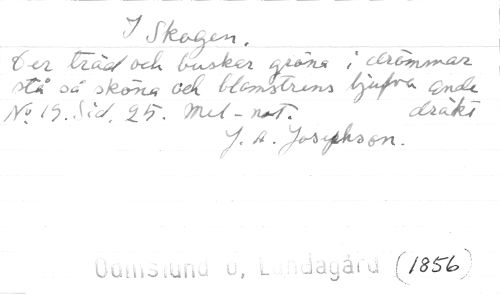 I Skogen.
Der träd och buskar gröna i drömmar
stå så sköna och blomstrens ljufva ande
dräkt
No 19. Sid. 25. Mel-not.
J. A. Josephson.
Odinslund o, Lundagård (1856)